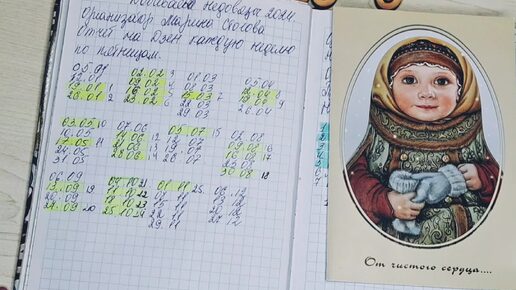 Недовяза 2024.
Организатор Марина
Отчет на Дзен каждую неделю
по пятницам.
05.01 02.02 3 01.03 05.04
12.01 09.02 08.03 12.04 8
19.01 1 16.02 5 15.03 7 19.04 9
26.01 2 23.02 6 22.03 26.04
29.03
03.05 10 07.06 05.07 15 02.08
10.05 14.06 12 12.07 09.08 16
17.05 11 21.06 13 19.07 16.08 17
24.05 28.06 14 26.07 23.08
31.05 30.08 18
06.09 04.10 21 01.11 25 06.12
13.09 19 11.10 22 08.11 13.12
20.09 18.10 23 15.11 20.12
27.09 20 25.10 24 22.11 27.12
29.11
От чистого сердца....